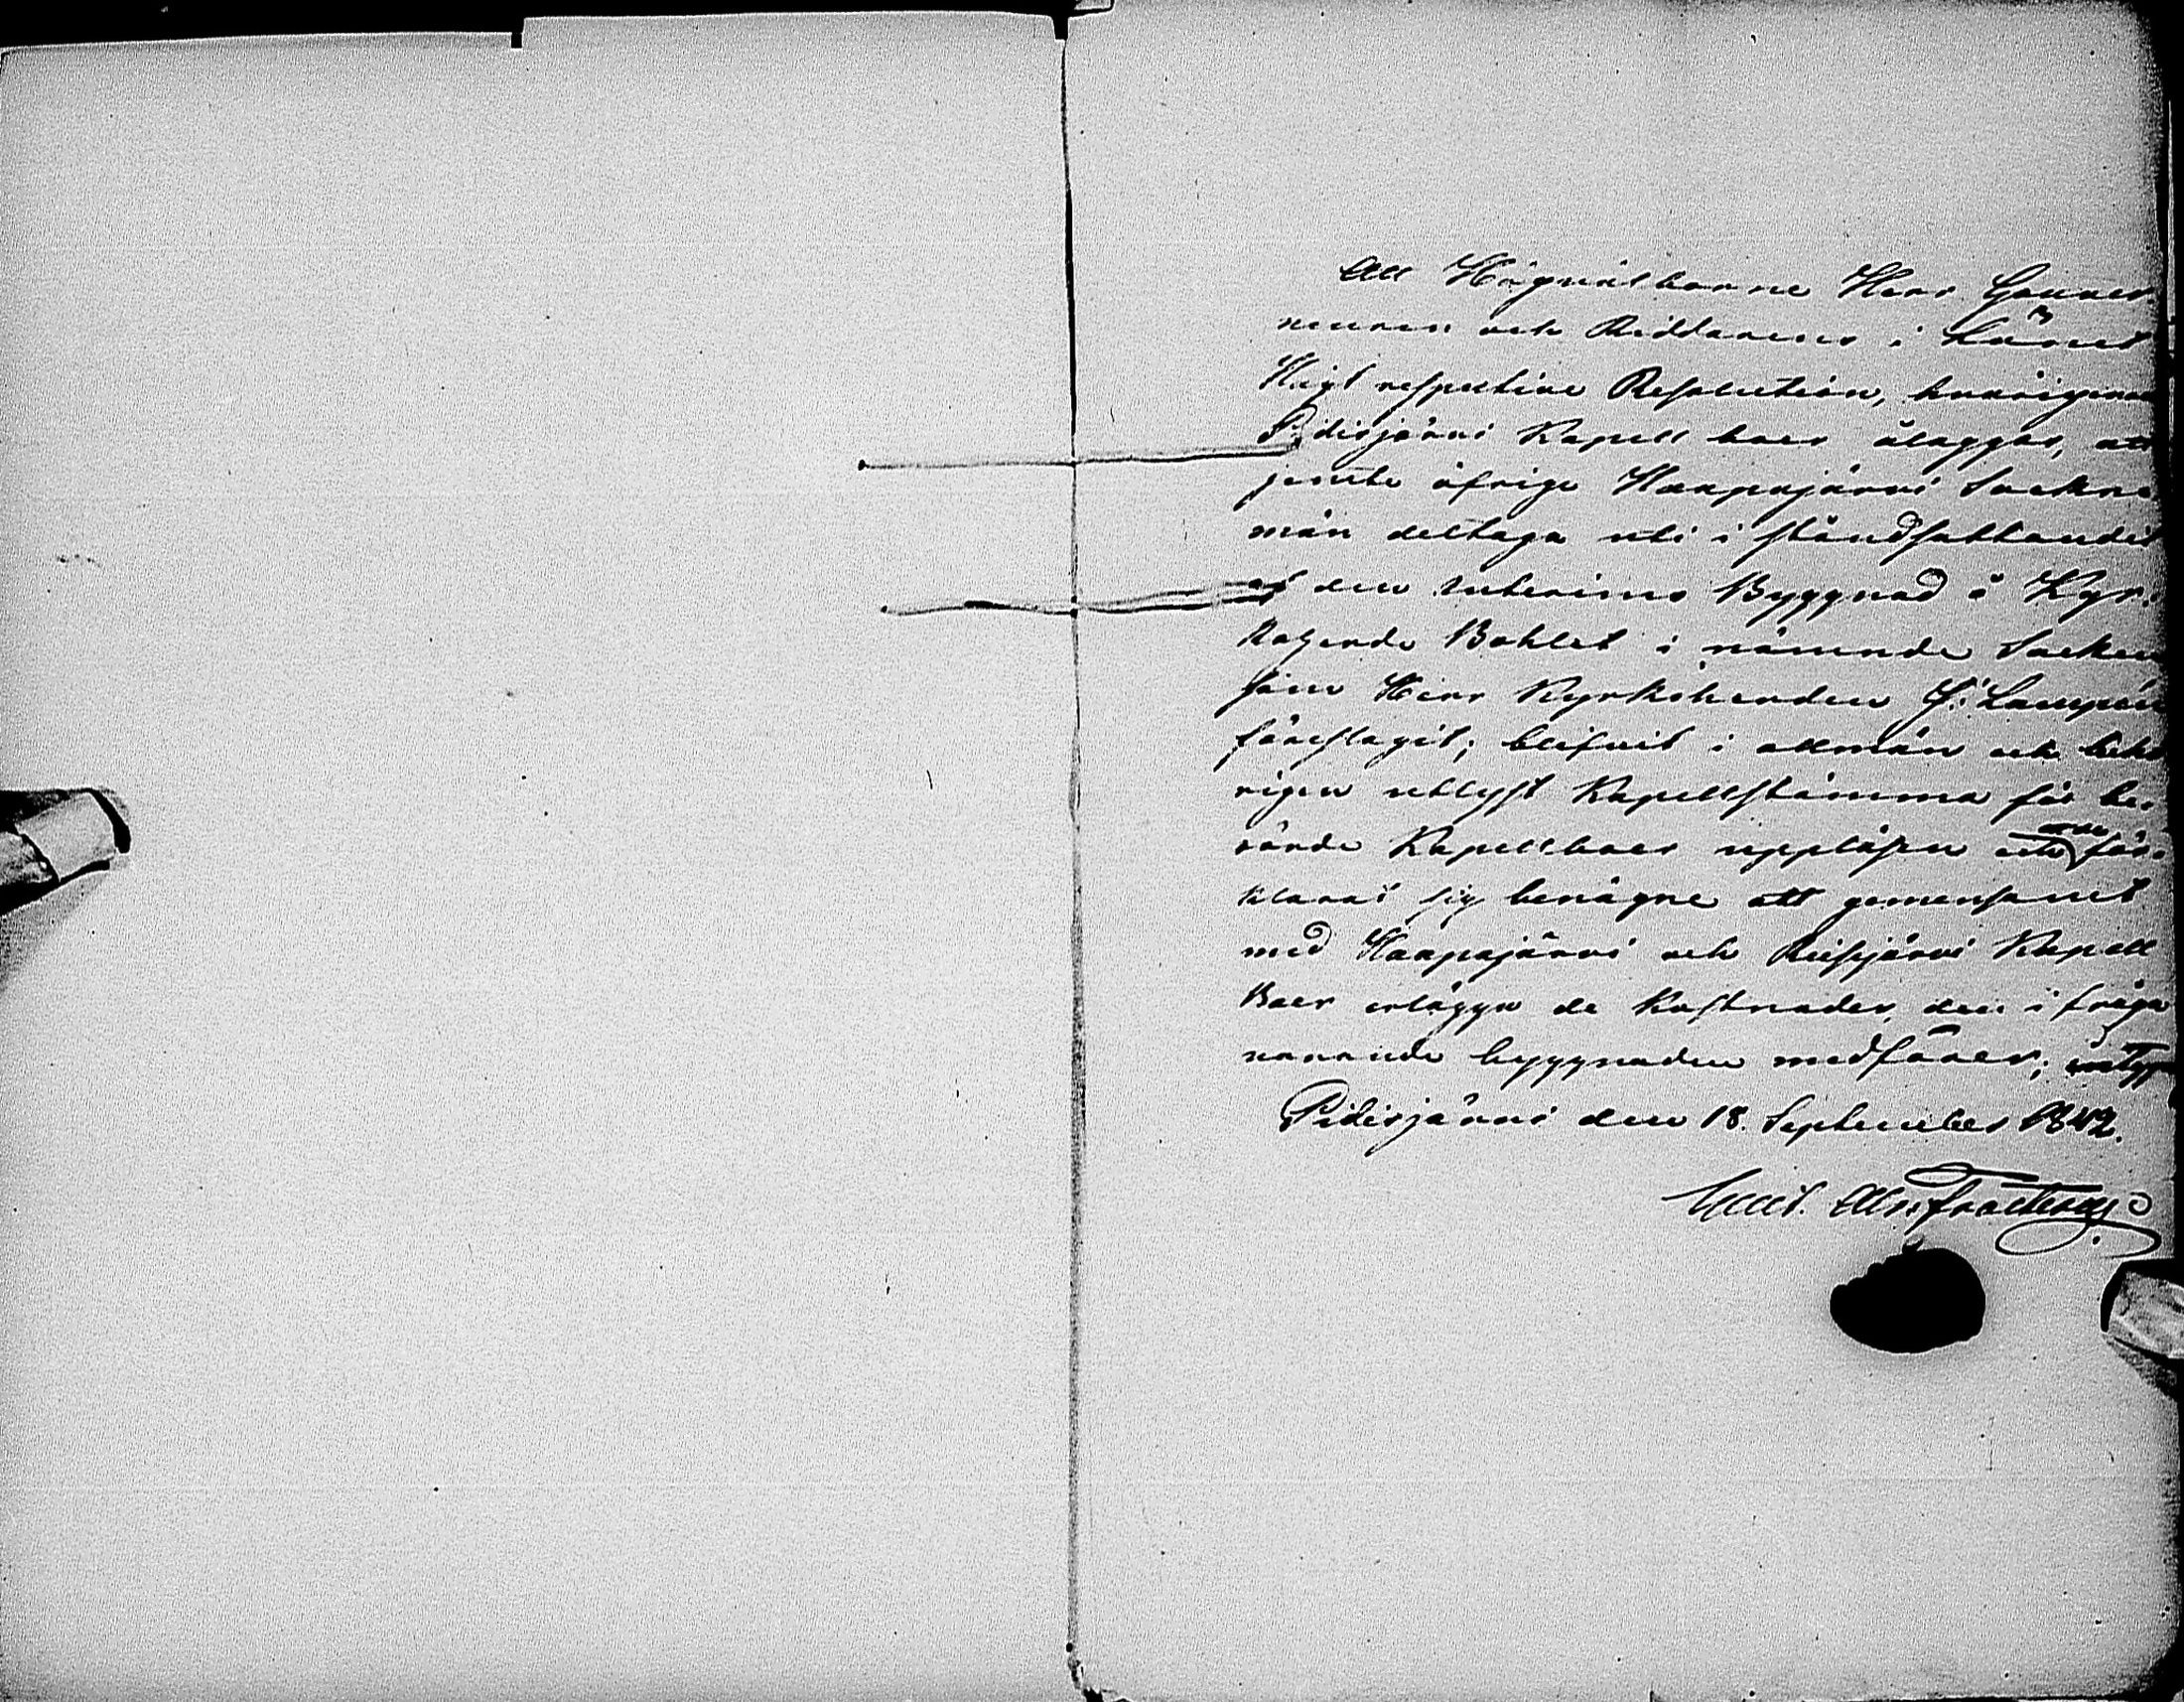 Att Högvälborne Herr Gouver-
neuren och Riddarens i Länet
Högt respective Resolution, hvarigenom
Pidisjärvi Kapell boer åläggas, att
jemte öfrige Haapajärvi Sockne
män deltaga uti i ståndsättandet
af den interims Byggnad å Kyr-
koherde Bohlet i nämnde Socken
som Herr Kyrkoherden J. Lampén
föreslagit; blifvit i allmän och behö
rigen utlyst Kapellstämma för be-
rörde Kapellboer uppläsen och för-
klarat sig benägne att gemensamt
med Haapajärvi och Reisjärvi Kapell
Boer erlägga de kostnader, den i fråga
varande byggnaden medförer; intyga
Pidisjärvi den 18. September 1842.